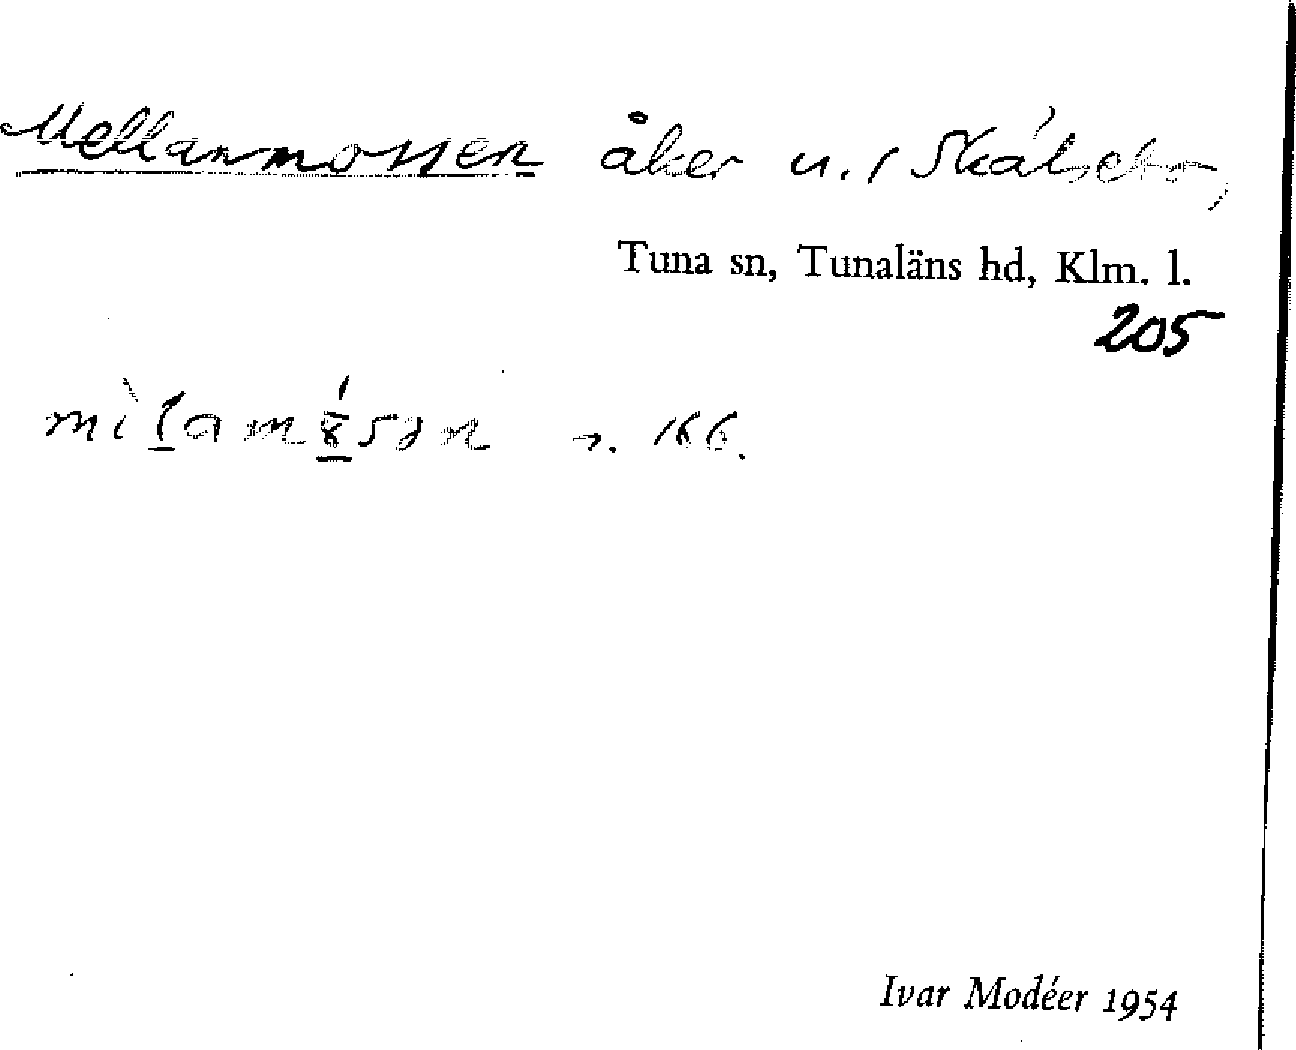 Mellanmossen åker u.
Tuna sn, Tunaläns hd, Klm. l.
205
166.
Ivar Modéer 1954